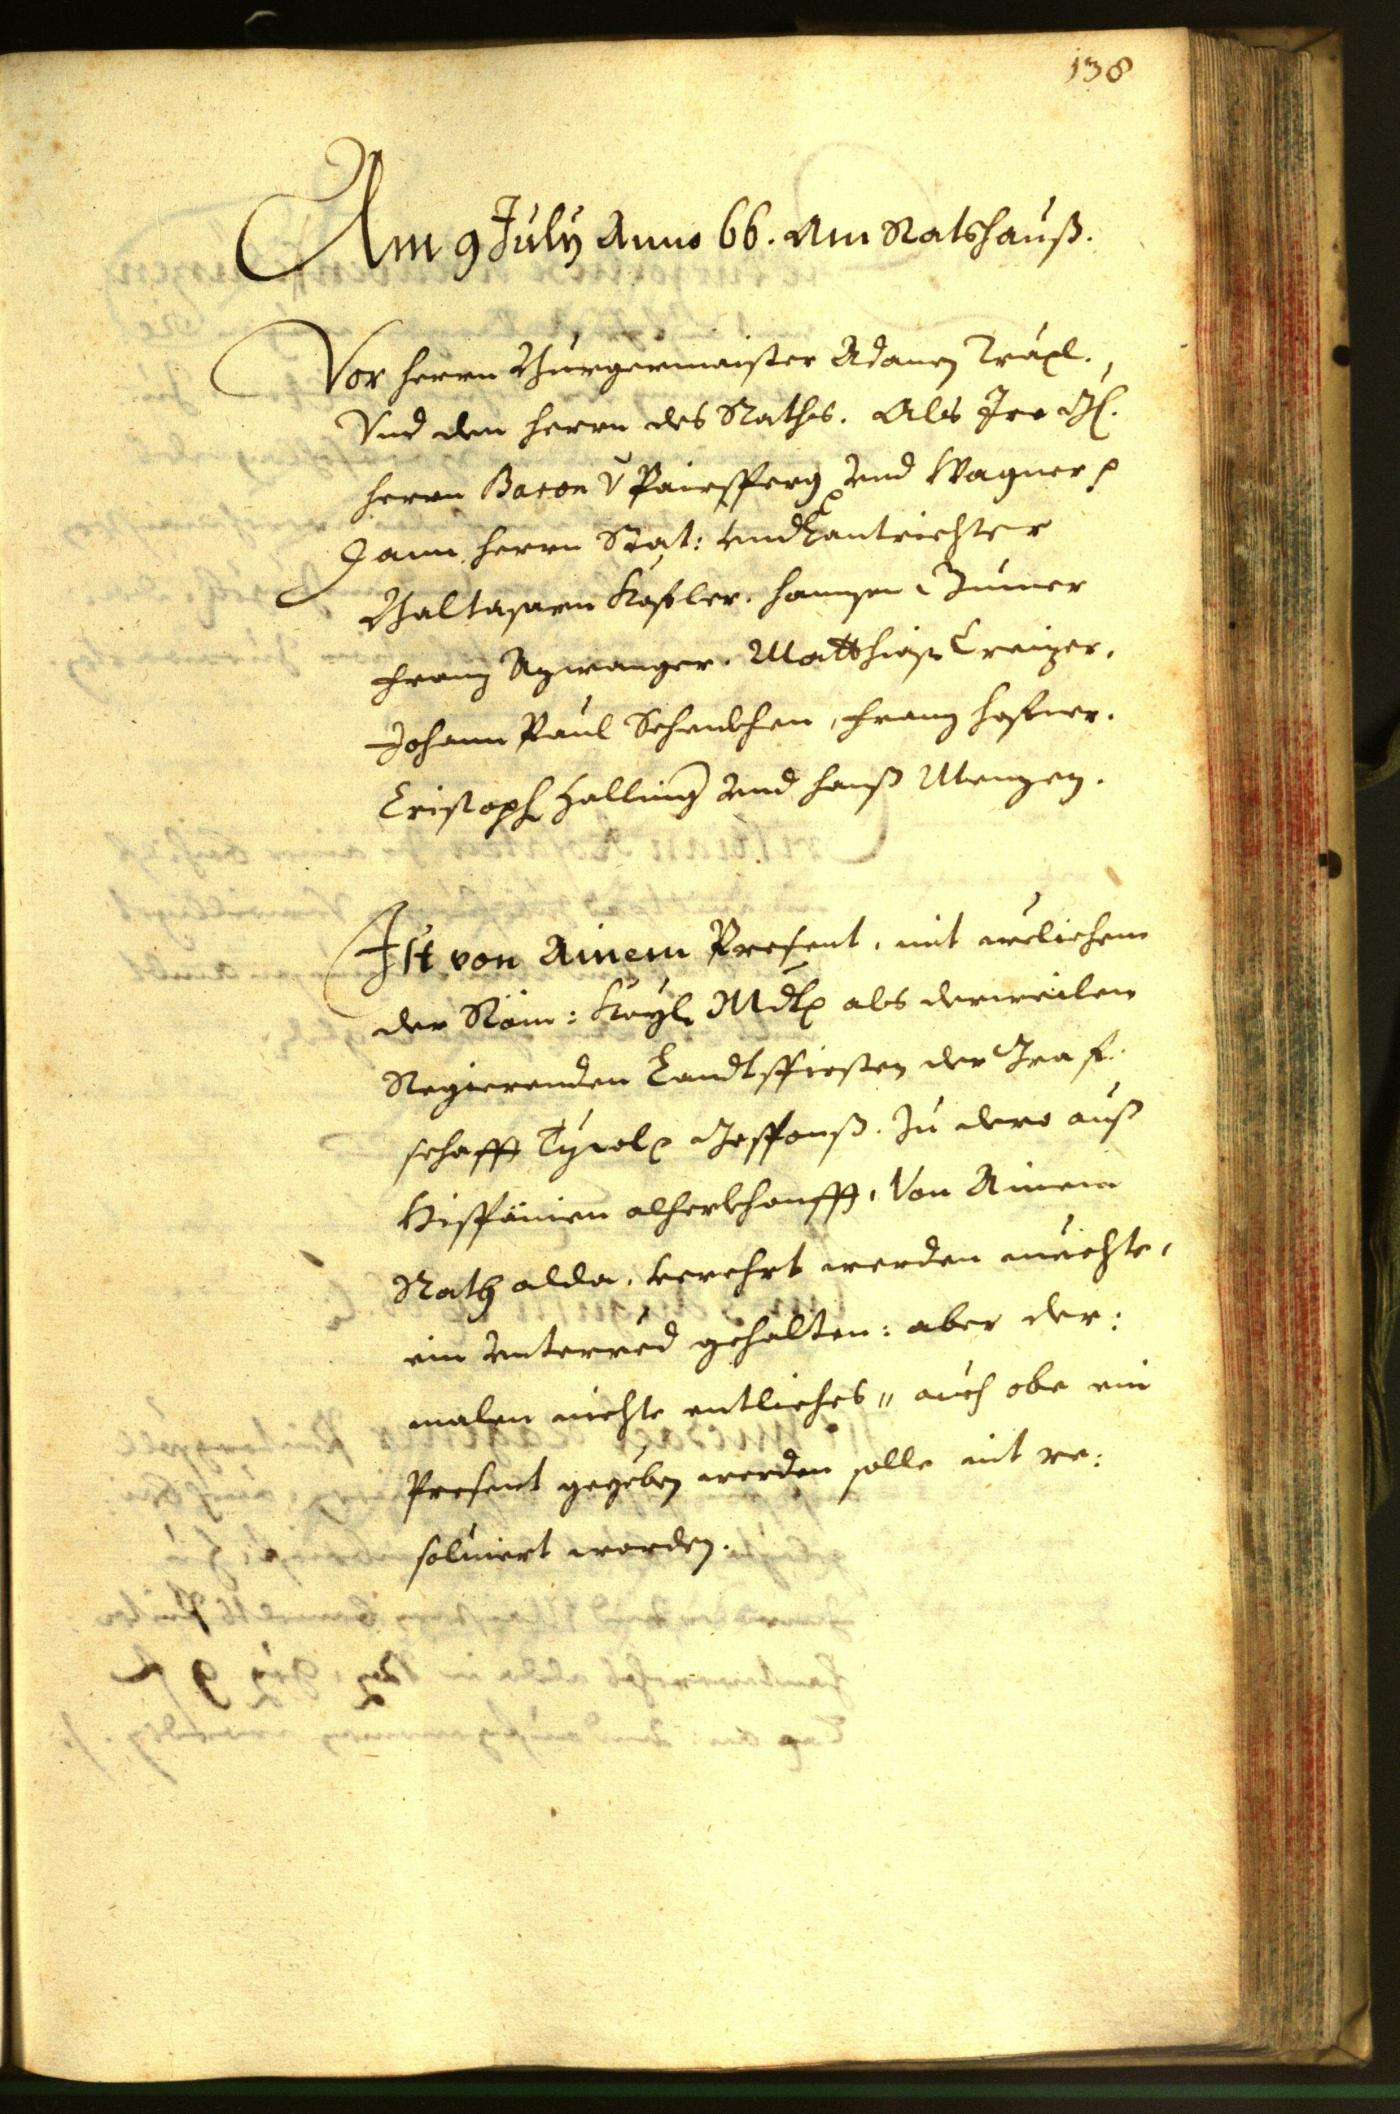 138
Am 9 July Anno 66. Am Ratshauß.
Vor herrn Burgermaister Adamen Träxl.
Vnd den herrn des Raths. Als Ire Gl.
herrn Baron v Pairsperg vnd Wagner p
Dann herrn Stat: vnd Lantrichter
Balthasarn Käßler. Hannsen Gumer
Franz Azwanger. Matthiasn Creizer.
Johann Paul Schenkhen, Franz Hafner.
Cristoph Halling vnd Hanß Menzen.
Ist von Ainem Present, mit welichem
der Röm: Kayl. Mdt p als derweilen
Regierenden Landtsfirsten der Graf:
schafft Tyrol p Gesponß. Zu dero auß
Hispänien alherkhonfft, Von Ainem
Rath alda, verehrt werden mechte,
ein vnterred gehalten: aber der:
malen nichts entliches, auch obe ein
Present gegeben werden solle nit re:
soluiert worden.